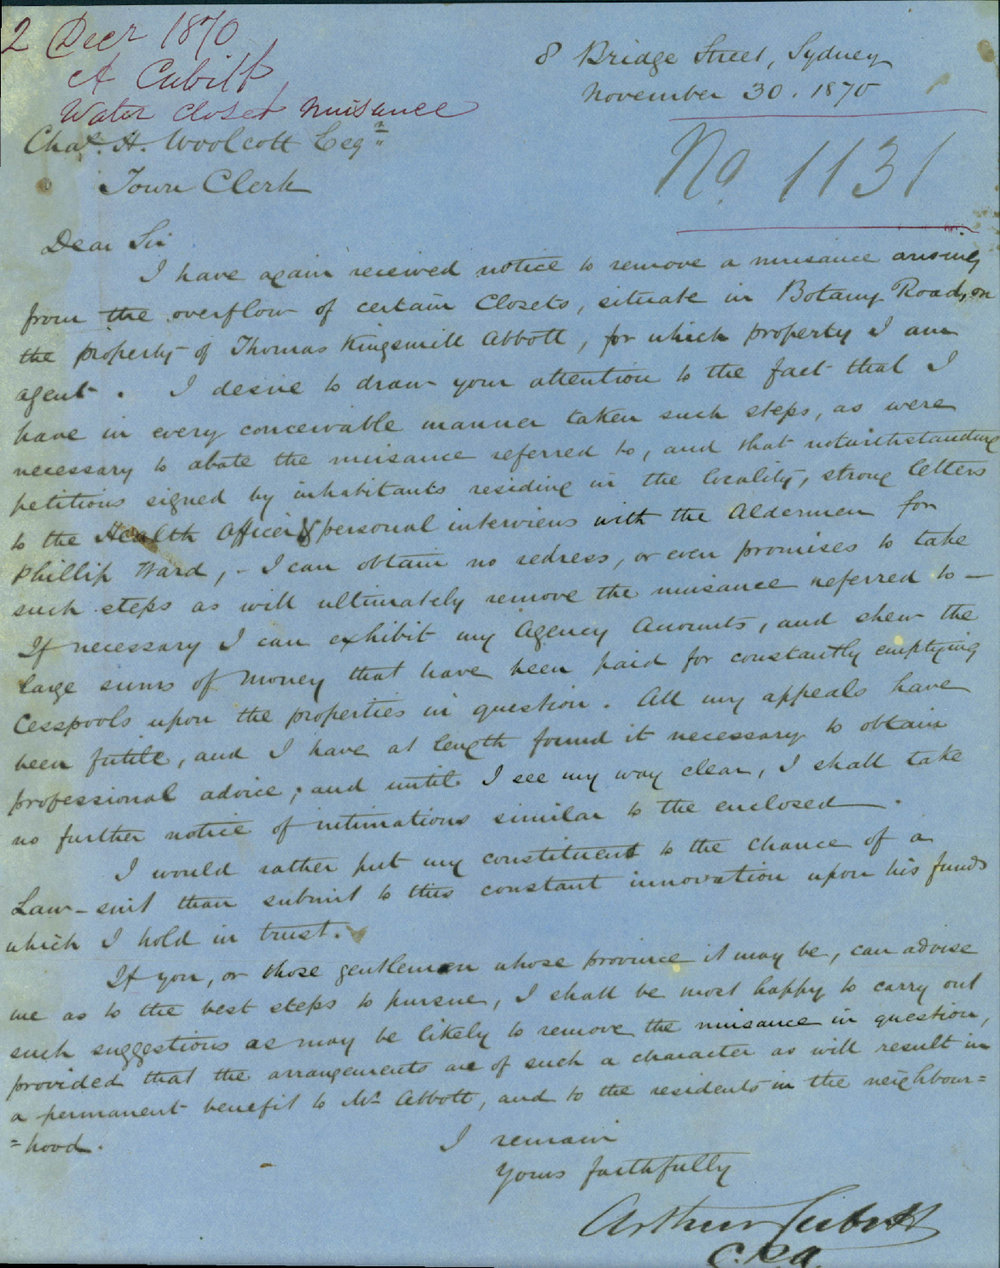 2 Decr 1870
A Cubitt
Water Closet nuisance
8 Bridge Street, Sydney
November 30. 1870
No. 1131
Chas. H. Woolcott Esqre
Town Clerk
Dear Sir
I have again received notice to remove a nuisance arising
from the overflow of certain Closets, situate in Botany Road, on
the property of Thomas Kingsmill Abbott, for which property I am
agent. I desire to draw your attention to the fact that I
have in every conceivable manner taken such steps, as were
necessary to abate the nuisance referred to, and that notwithstanding
petitions signed by inhabitants residing in the locality, strong letters
to the Health Officer & personal interviews with the Aldermen for
Phillip Ward, - I can obtain no redress, or even promises to take
such steps as will ultimately remove the nuisance referred to -
If necessary I can exhibit my Agency Accounts, and shew the
large sums of money that have been paid for constantly emptying
Cesspools upon the properties in question. All my appeals have
been futile, and I have at length found it necessary to obtain
professional advice; and until I see my way clear, I shall take
no further notice of intimations similar to the enclosed.
I would rather put my constituent to the chance of a
Law-suit than submit to this constant innovation upon his funds
which I hold in trust.
If you, or those gentlemen whose province it may be, can advise
me as to the best steps to pursue, I shall be most happy to carry out
such suggestions as may be likely to remove the nuisance in question,
provided that the arrangements are of such a character as will result in
a permanent benefit to Mr Abbott, and to the residents in the neighbour=
=hood.
I remain
Yours faithfully
Arthur Cubitt